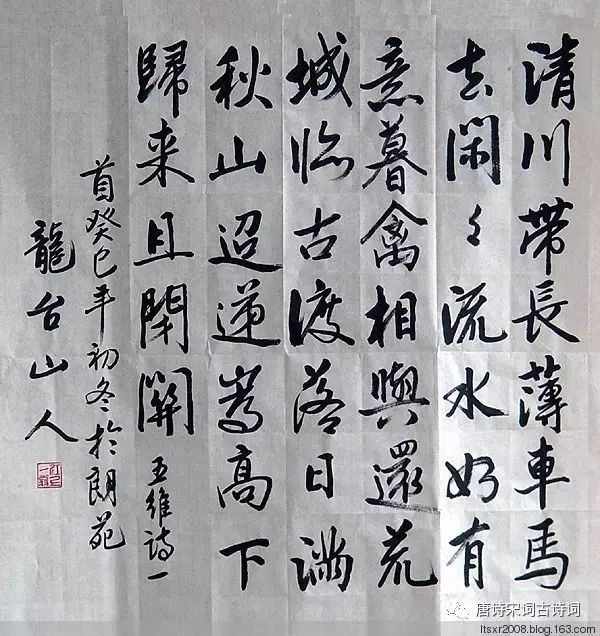 清川帶長薄車馬
去閑々流水如有
意暮禽相與還荒
城臨古渡落日滿
秋山迢遞嵩高下
歸来且閉關 王維詩一
首癸巳年初冬於朗苑
龍台山人
唐诗宋词古诗词
ltsxr2008.blog.163.com